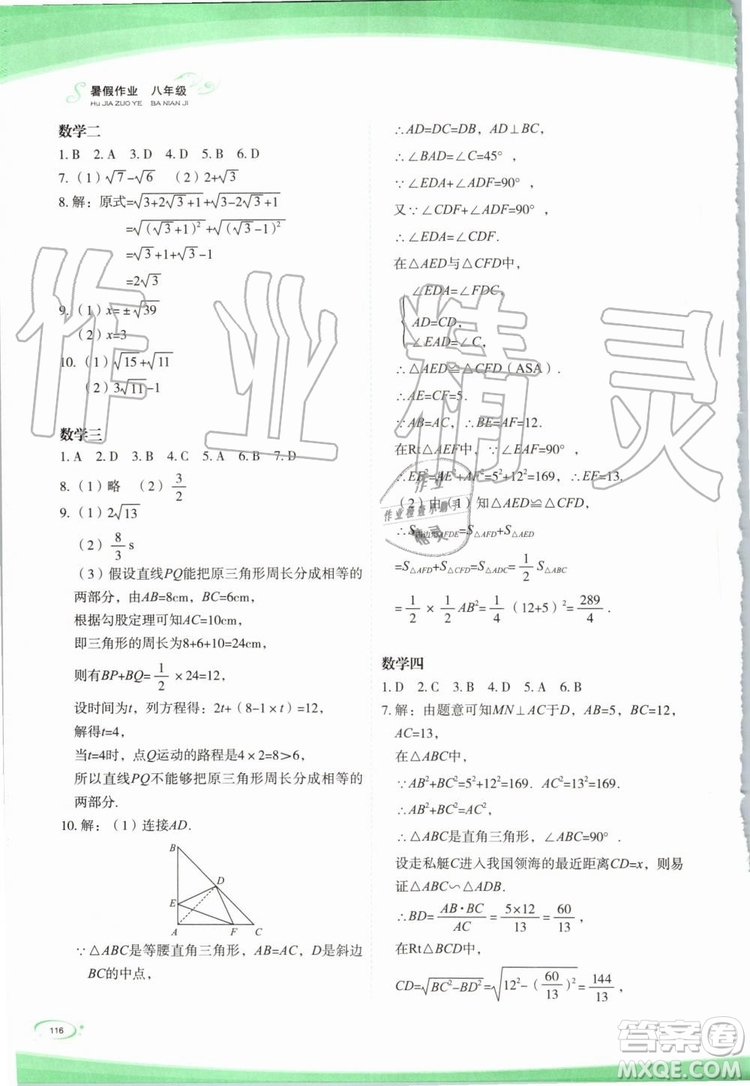 暑假作业 八年级
HU JIA ZUO YE BA NIAN JI
数学二
1. B 2. A 3. D 4. D 5. B 6. D
7.（1）√7-√6 （2）2+√3
8. 解：原式=√(3+2√3+1)+√(3-2√3+1)
=√((√3+1)²)+√((√3-1)²)
=√3+1+√3-1
=2√3
9.（1）x=±√39
（2）x=3
10.（1）√15+√11
（2）3√11-1
数学三
1. A 2. D 3. C 4. C 5. A 6. B 7. D
8.（1）略 （2）3/2
9.（1）2√13
（2）8/3 s
（3）假设直线PQ能把原三角形周长分成相等的
两部分，由AB=8cm，BC=6cm，
根据勾股定理可知AC=10cm，
即三角形的周长为8+6+10=24cm，
则有BP+BQ=1/2×24=12，
设时间为t，列方程有2t+（8-1×t）=12，
解得t=4，
当t=4时，点Q运动的路程是4×2=8＞6，
所以直线PQ不能够把原三角形周长分成相等的
两部分.
10. 解：（1）连接AD.
B
D
E
A F C
∵△ABC是等腰直角三角形，AB=AC，D是斜边
BC的中点，
116
∴AD=DC=DB，AD⊥BC，
∴∠BAD=∠C=45°，
∵∠EDA+∠ADF=90°，
又∵∠CDF+∠ADF=90°，
∴∠EDA=∠CDF.
在△AED与△CFD中，
∠EDA=∠FDC，
AD=CD，
∠EAD=∠C，
∴△AED≌△CFD（ASA）.
∴AE=CF=5.
∵AB=AC，∴BE=AF=12.
在Rt△AEF中，∵∠EAF=90°，
∴EF²=AE²+AF²=5²+12²=169，∴EF=13.
（2）由（1）知△AED≌△CFD，
∴S AFDE=S△CFD，=S△AFD+S△AED
=S△AFD+S△CFD=1/2 S△ABC
=1/2×1/2 AB²=1/4（12+5）²=289/4
数学四
1. D 2. C 3. B 4. D 5. A 6. B
7. 解：由题意可知MN⊥AC于D，AB=5，BC=12，
AC=13，
在△ABC中，
∵AB²+BC²=5²+12²=169，
∴AB²+BC²=AC²，
∴△ABC是直角三角形，∠ABC=90°.
设走私艇C进入我国领海的最近距离CD=x，则易
证△ABC∽△ADB.
∴BD=AB·BC/AC=5×12/13=60/13
在Rt△BCD中，
CD=√(BC²-BD²)=√(12²-(60/13)²)=144/13
作业精灵
作业
作业检查小助手
精灵
答案圈
MXQE.COM